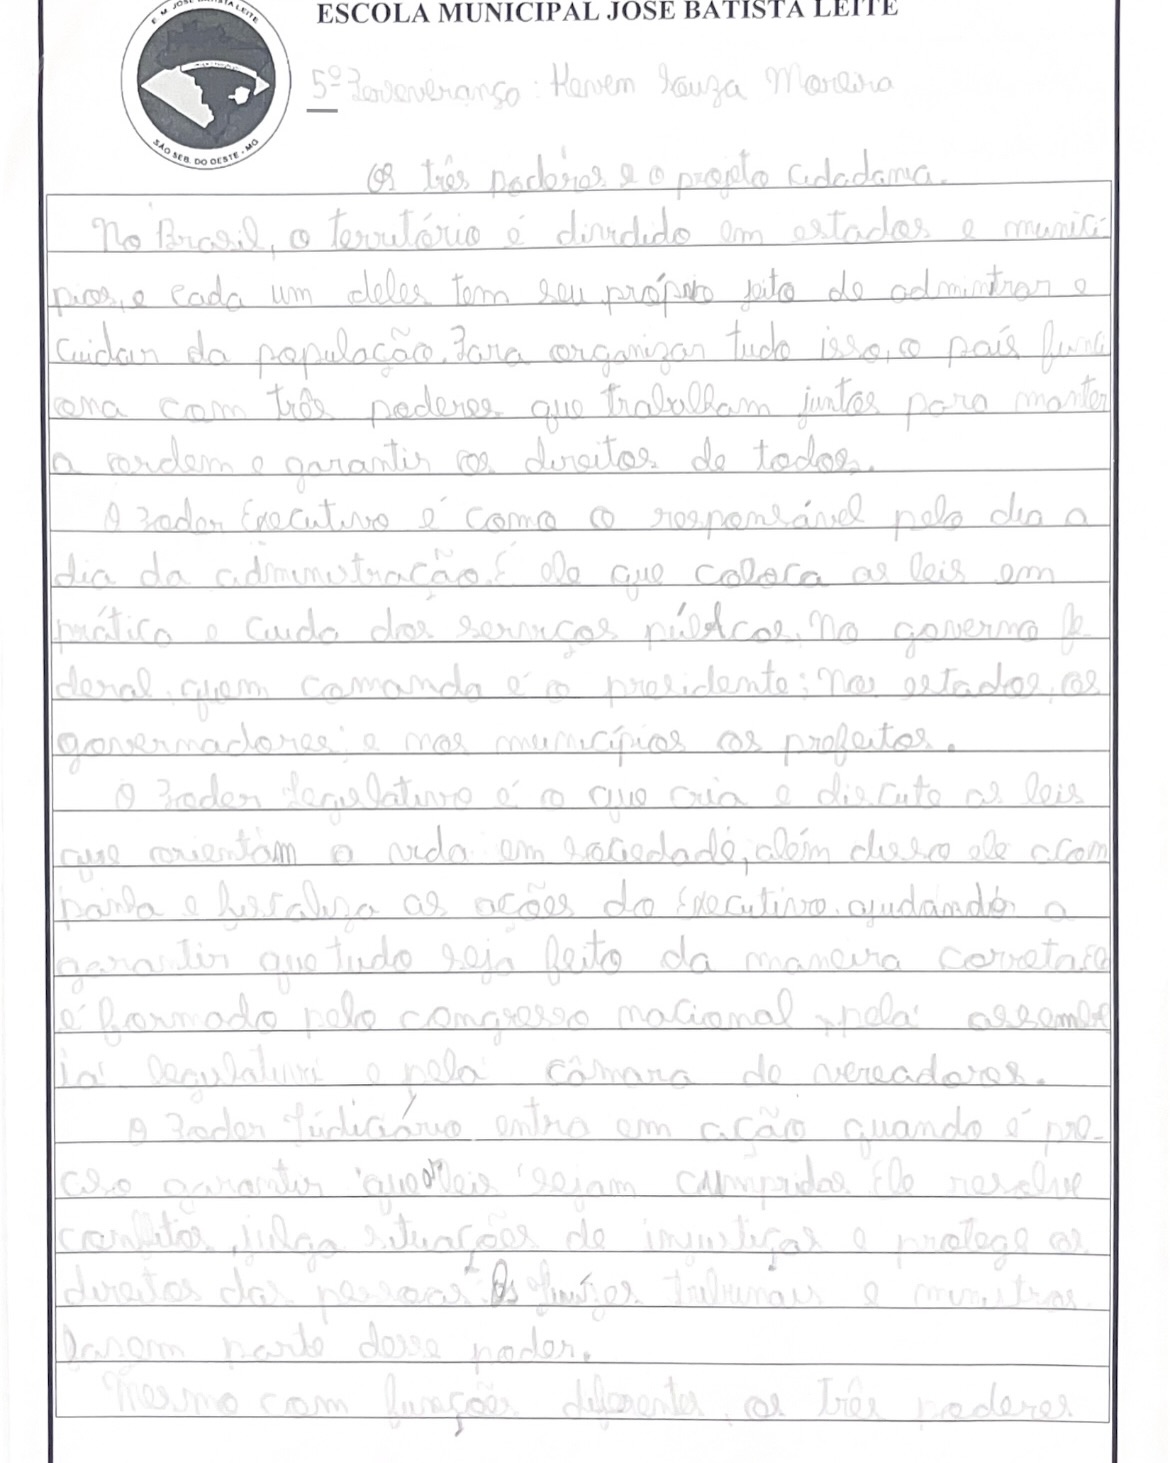 ESCOLA MUNICIPAL JOSÉ BATISTA LEITE
E. M. JOSÉ BATISTA LEITE
SÃO SEB. DO OESTE - MG
5º Perseverança: Kevem Souza Moreira
Os três poderes e o projeto cidadania.
No Brasil, o território é dividido em estados e municí
pios, e cada um deles tem seu próprio jeito de admintrar e
cuidar da população. Para organizar tudo isso, o país funci
ona com três poderes que trabalham juntos para manter
a ordem e garantir os direitos de todos.
O Poder Executivo é como o responsável pelo dia a
dia da administração. É ele que coloca as leis em
prática e cuida dos serviços públicos. No governo fe
deral, quem comanda é o presidente; nos estados, os
governadores; e nos municípios os prefeitos.
O Poder Legislativo é o que cria e discute as leis
que orientam a vida em sociedade, além disso ele acom
panha e fiscaliza as ações do Executivo, ajudando a
garantir que tudo seja feito da maneira correta. Ele
é formado pelo congresso nacional, pela assemble
ia legislativa e pela câmara de vereadores.
O Poder Judiciário entra em ação quando é pre-
ciso garantir que as leis sejam cumpridas. Ele resolve
conflitos, julga situações de injustiças e protege os
direitos das pessoas. Os juízes tribunais e ministros
fazem parte desse poder.
Mesmo com funções diferentes, os três poderes